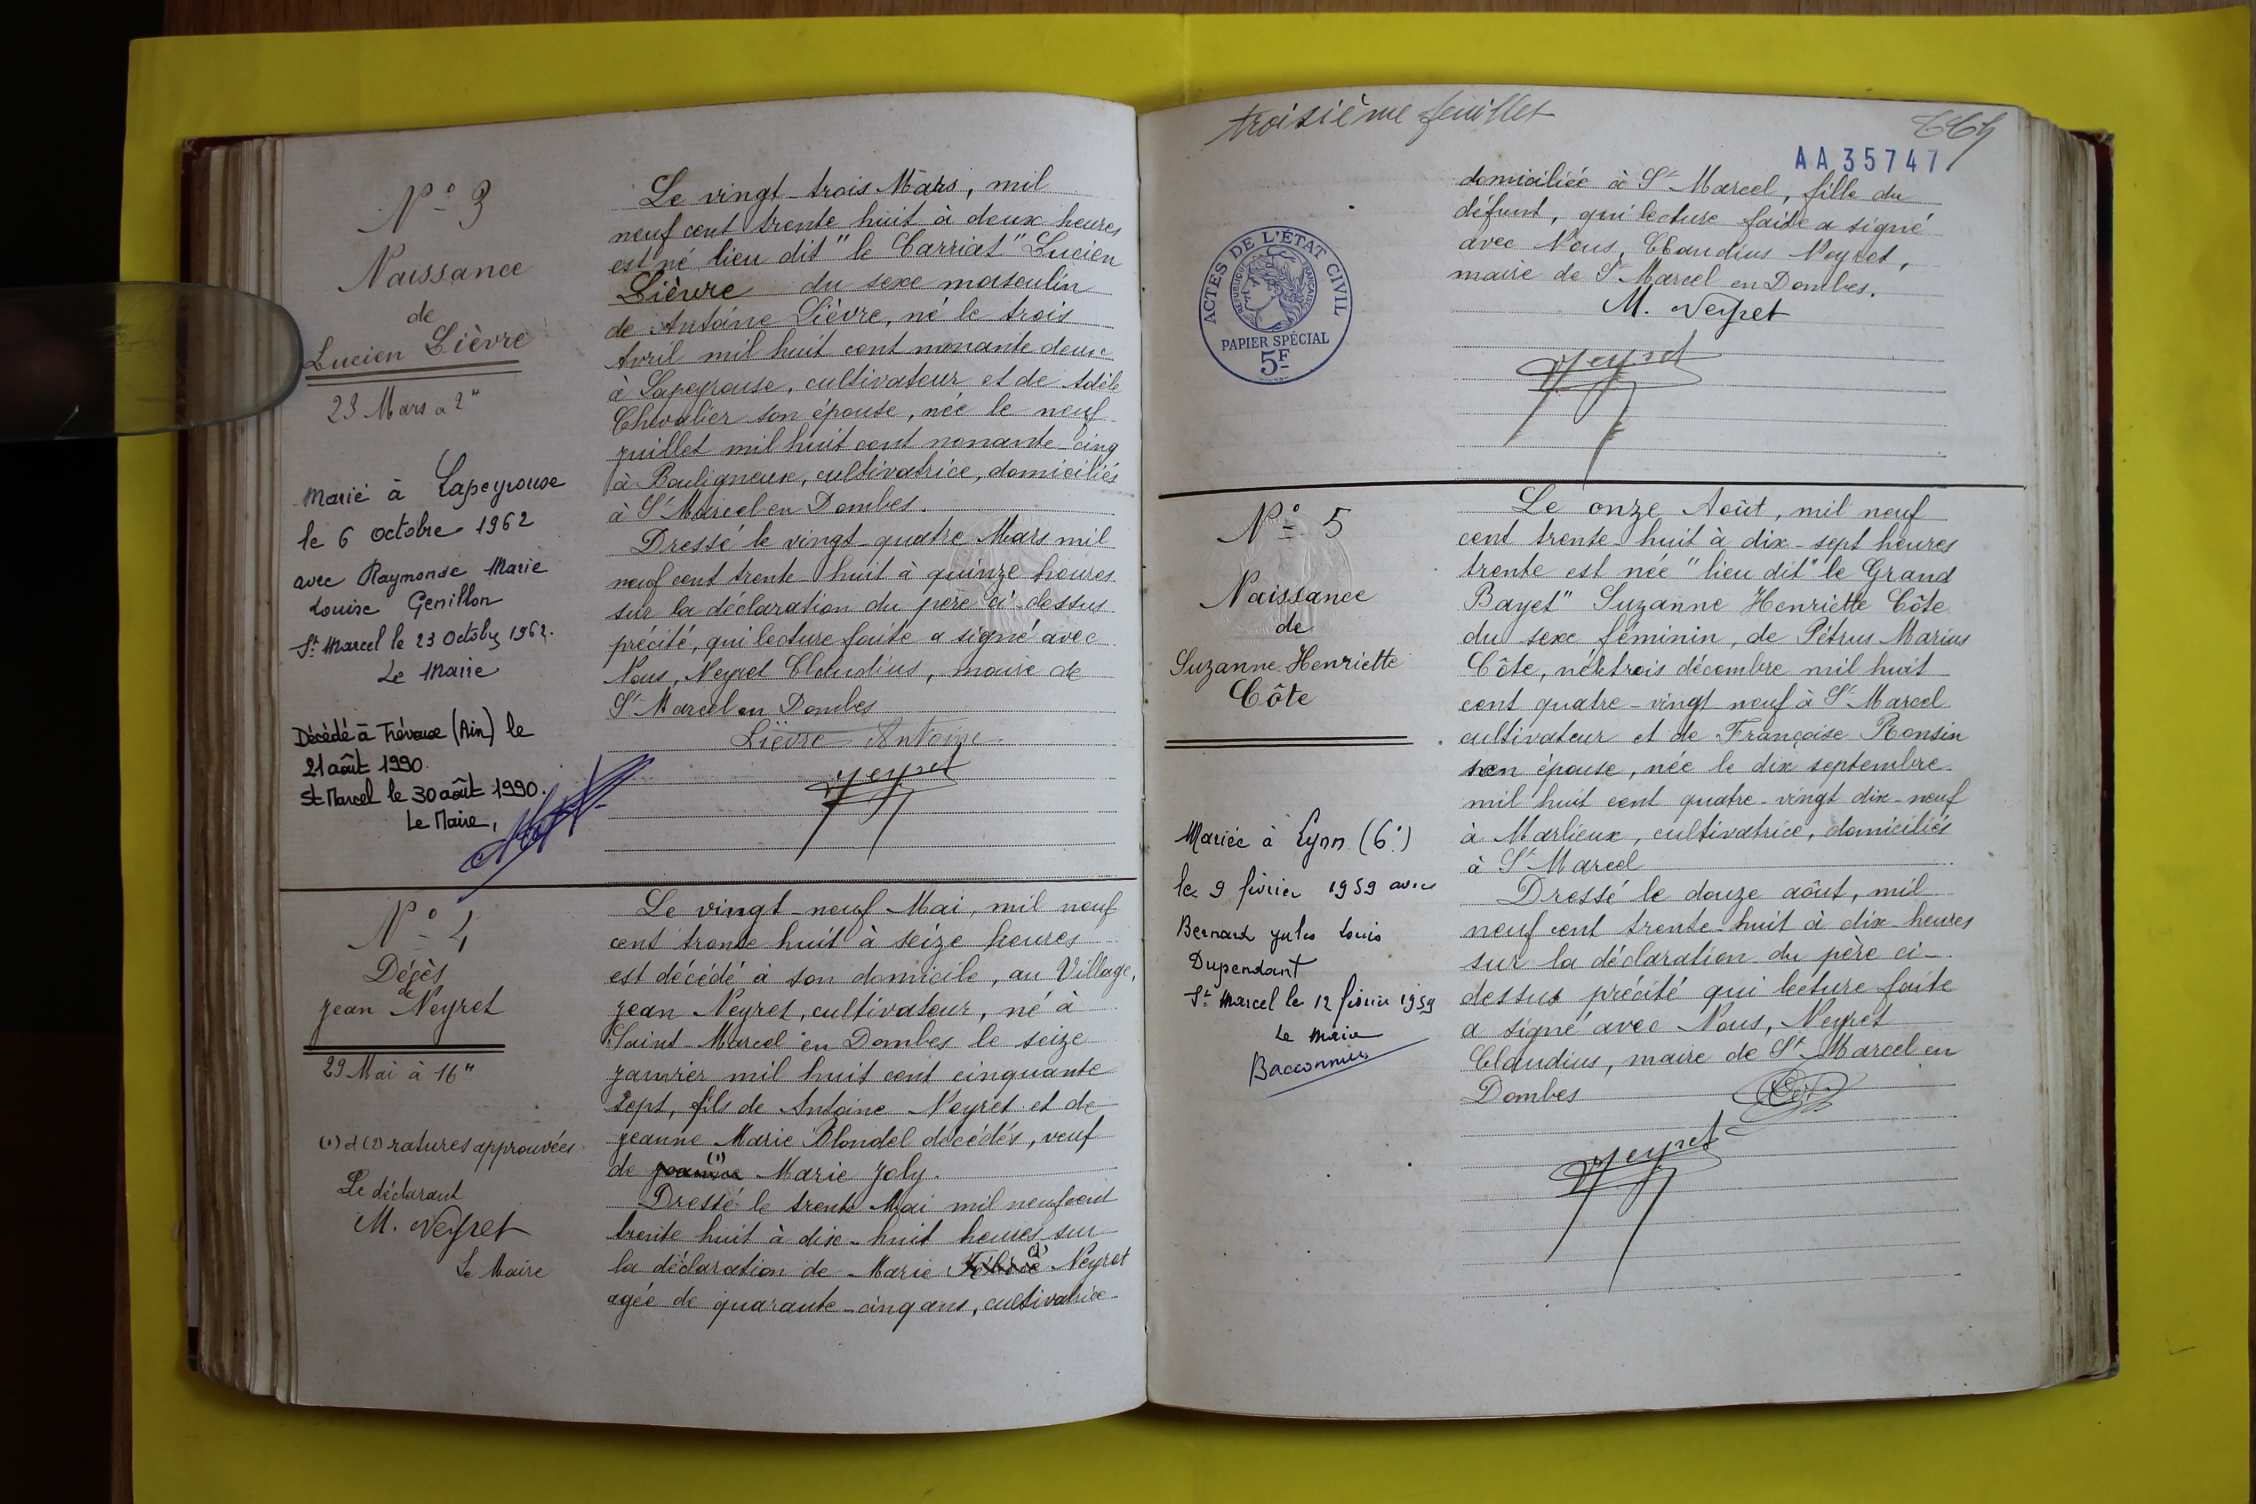 N° 3
Naissance
de
Lucien Lièvre
23 Mars a 2h
Marié à Lapeyrouse
le 6 octobre 1962
avec Raymonde Marie
Louise Genillon
St Marcel le 23 Octobre 1962.
Le Maire
Décédé à Trévoux (Ain) le
21 août 1990.
St Marcel le 30 août 1990.
Le Maire,
Le vingt-trois Mars, mil
neuf cent trente huit à deux heures
est né lieu dit "le Carriat" Lucien
Lièvre du sexe masculin
de Antoine Lièvre, né le trois
Avril mil huit cent nonante deux
à Lapeyrouse, cultivateur et de Adèle
Chevalier son épouse, née le neuf
juillet mil huit cent nonante-cinq
à Bouligneux, cultivatrice, domiciliés
à St Marcel en Dombes.
Dressé le vingt-quatre Mars mil
neuf cent trente-huit à quinze heures
sur la déclaration du père ci-dessus
précité, qui lecture faite a signé avec
Nous, Neyret Claudius, maire de
St Marcel en Dombes
Lièvre Antoine
Neyret
N° 4
Décès
de
Jean Neyret
29 Mai à 16h
(1) et (2) ratures approuvées
Le déclarant
M. Neyret
Le Maire
Le vingt-neuf Mai, mil neuf
cent trente huit à seize heures
est décédé à son domicile, au Village,
Jean Neyret, cultivateur, né à
Saint-Marcel en Dombes le seize
janvier mil huit cent cinquante
sept, fils de Antoine Neyret et de
Jeanne Marie Blondel décédés, veuf
de (1) Marie Joly.
Dressé le trente Mai mil neuf cent
trente huit à dix-huit heures sur
la déclaration de Marie (2) Neyret
agée de quarante-cinq ans, cultivatrice
troisième feuillet
AA35747
domiciliée à St Marcel, fille du
défunt, qui lecture faite a signé
avec Nous, Claudius Neyret,
maire de St Marcel en Dombes.
M. Neyret
Neyret
ACTES DE L'ÉTAT CIVIL
RÉPUBLIQUE FRANÇAISE
PAPIER SPÉCIAL
5F
N° 5
Naissance
de
Suzanne Henriette
Côte
Mariée à Lyon (6e)
le 9 février 1959 avec
Bernard Jules Louis
Dupendant
St Marcel le 12 février 1959
Le Maire
Bacconnier
Le onze Août, mil neuf
cent trente-huit à dix-sept heures
trente est née "lieu dit" le Grand
Bayet" Suzanne Henriette Côte
du sexe féminin, de Pétrus Marius
Côte, né le trois décembre mil huit
cent quatre-vingt neuf à St Marcel
cultivateur et de Françoise Ronsin
son épouse, née le dix septembre
mil huit cent quatre-vingt dix-neuf
à Marlieux, cultivatrice, domiciliés
à St Marcel
Dressé le douze août, mil
neuf cent trente-huit à dix-heures
sur la déclaration du père ci-
dessus précité qui lecture faite
a signé avec Nous, Neyret
Claudius, maire de St Marcel en
Dombes
Neyret